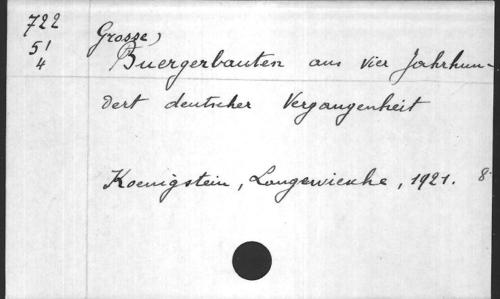 722
51
4
Grosse,
Buergerbauten aus vier Jahrhun-
dert deutscher Vergangenheit
Koenigstein, Langewiesche, 1921. 8